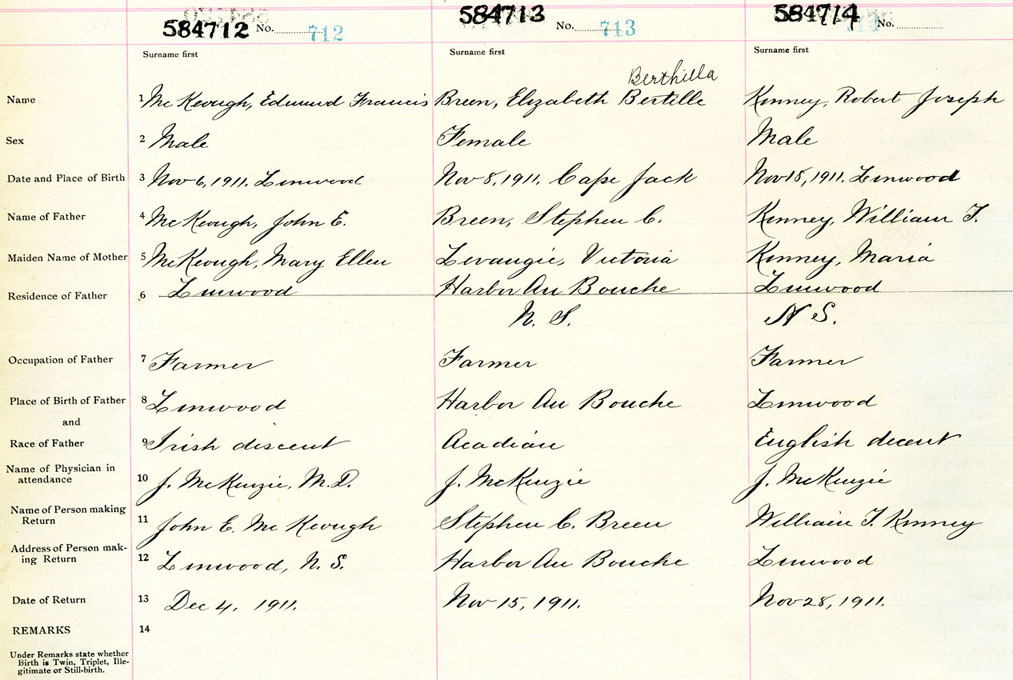 584712 No. 712 584713 No. 713 584714 No.
Surname first Surname first Surname first
Berthilla
Name 1 McKeough, Edmund Francis Breen, Elizabeth Bertille Kinney, Robert Joseph
Sex 2 Male Female Male
Date and Place of Birth 3 Nov 6, 1911. Linwood Nov 8, 1911. Cape Jack Nov 18, 1911. Linwood
Name of Father 4 McKeough, John E. Breen, Stephen C. Kinney, William T.
Maiden Name of Mother 5 McKeough, Mary Ellen Levangie, Victoria Kinney, Maria
Residence of Father 6 Linwood Harbor Au Bouche Linwood
N. S. N S.
Occupation of Father 7 Farmer Farmer Farmer
Place of Birth of Father 8 Linwood Harbor Au Bouche Linwood
and
Race of Father 9 Irish discent Acadian English decent
Name of Physician in
attendance 10 J. McKenzie, M.D. J. McKenzie J. McKenzie
Name of Person making
Return 11 John E. McKeough Stephen C. Breen William T. Kinney
Address of Person mak-
ing Return 12 Linwood, N. S. Harbor Au Bouche Linwood
Date of Return 13 Dec 4, 1911. Nov 15, 1911. Nov 28, 1911.
REMARKS 14
Under Remarks state whether
Birth is Twin, Triplet, Ille-
gitimate or Still-birth.